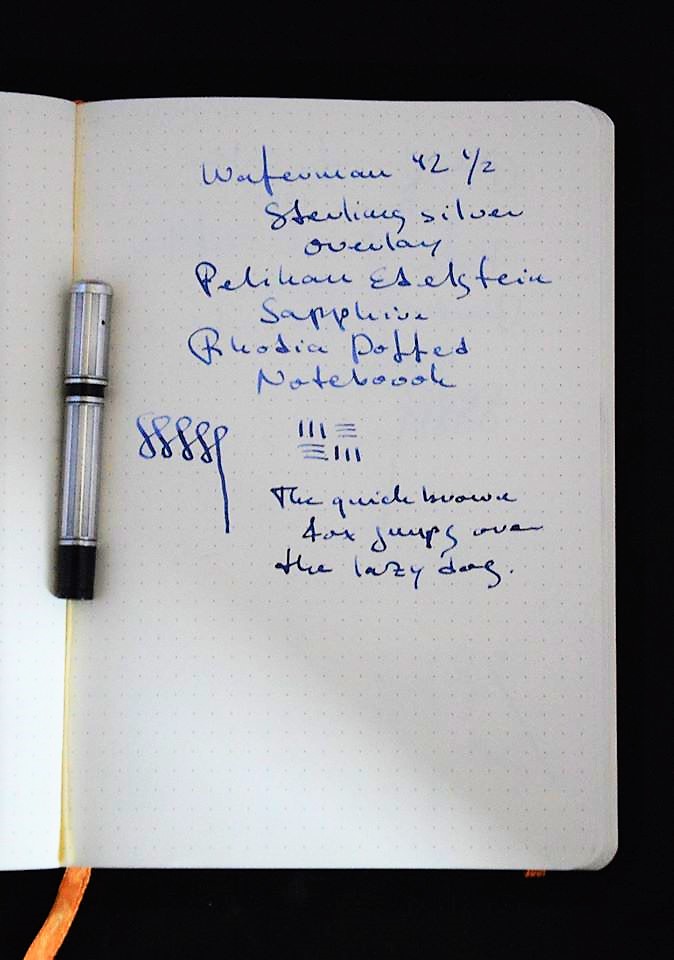 Waterman 42 1/2
Sterling silver
overlay
Pelikan Edelstein
Sapphire
Rhodia Dotted
Noteboook
The quick brown
fox jumps over
the lazy dog.